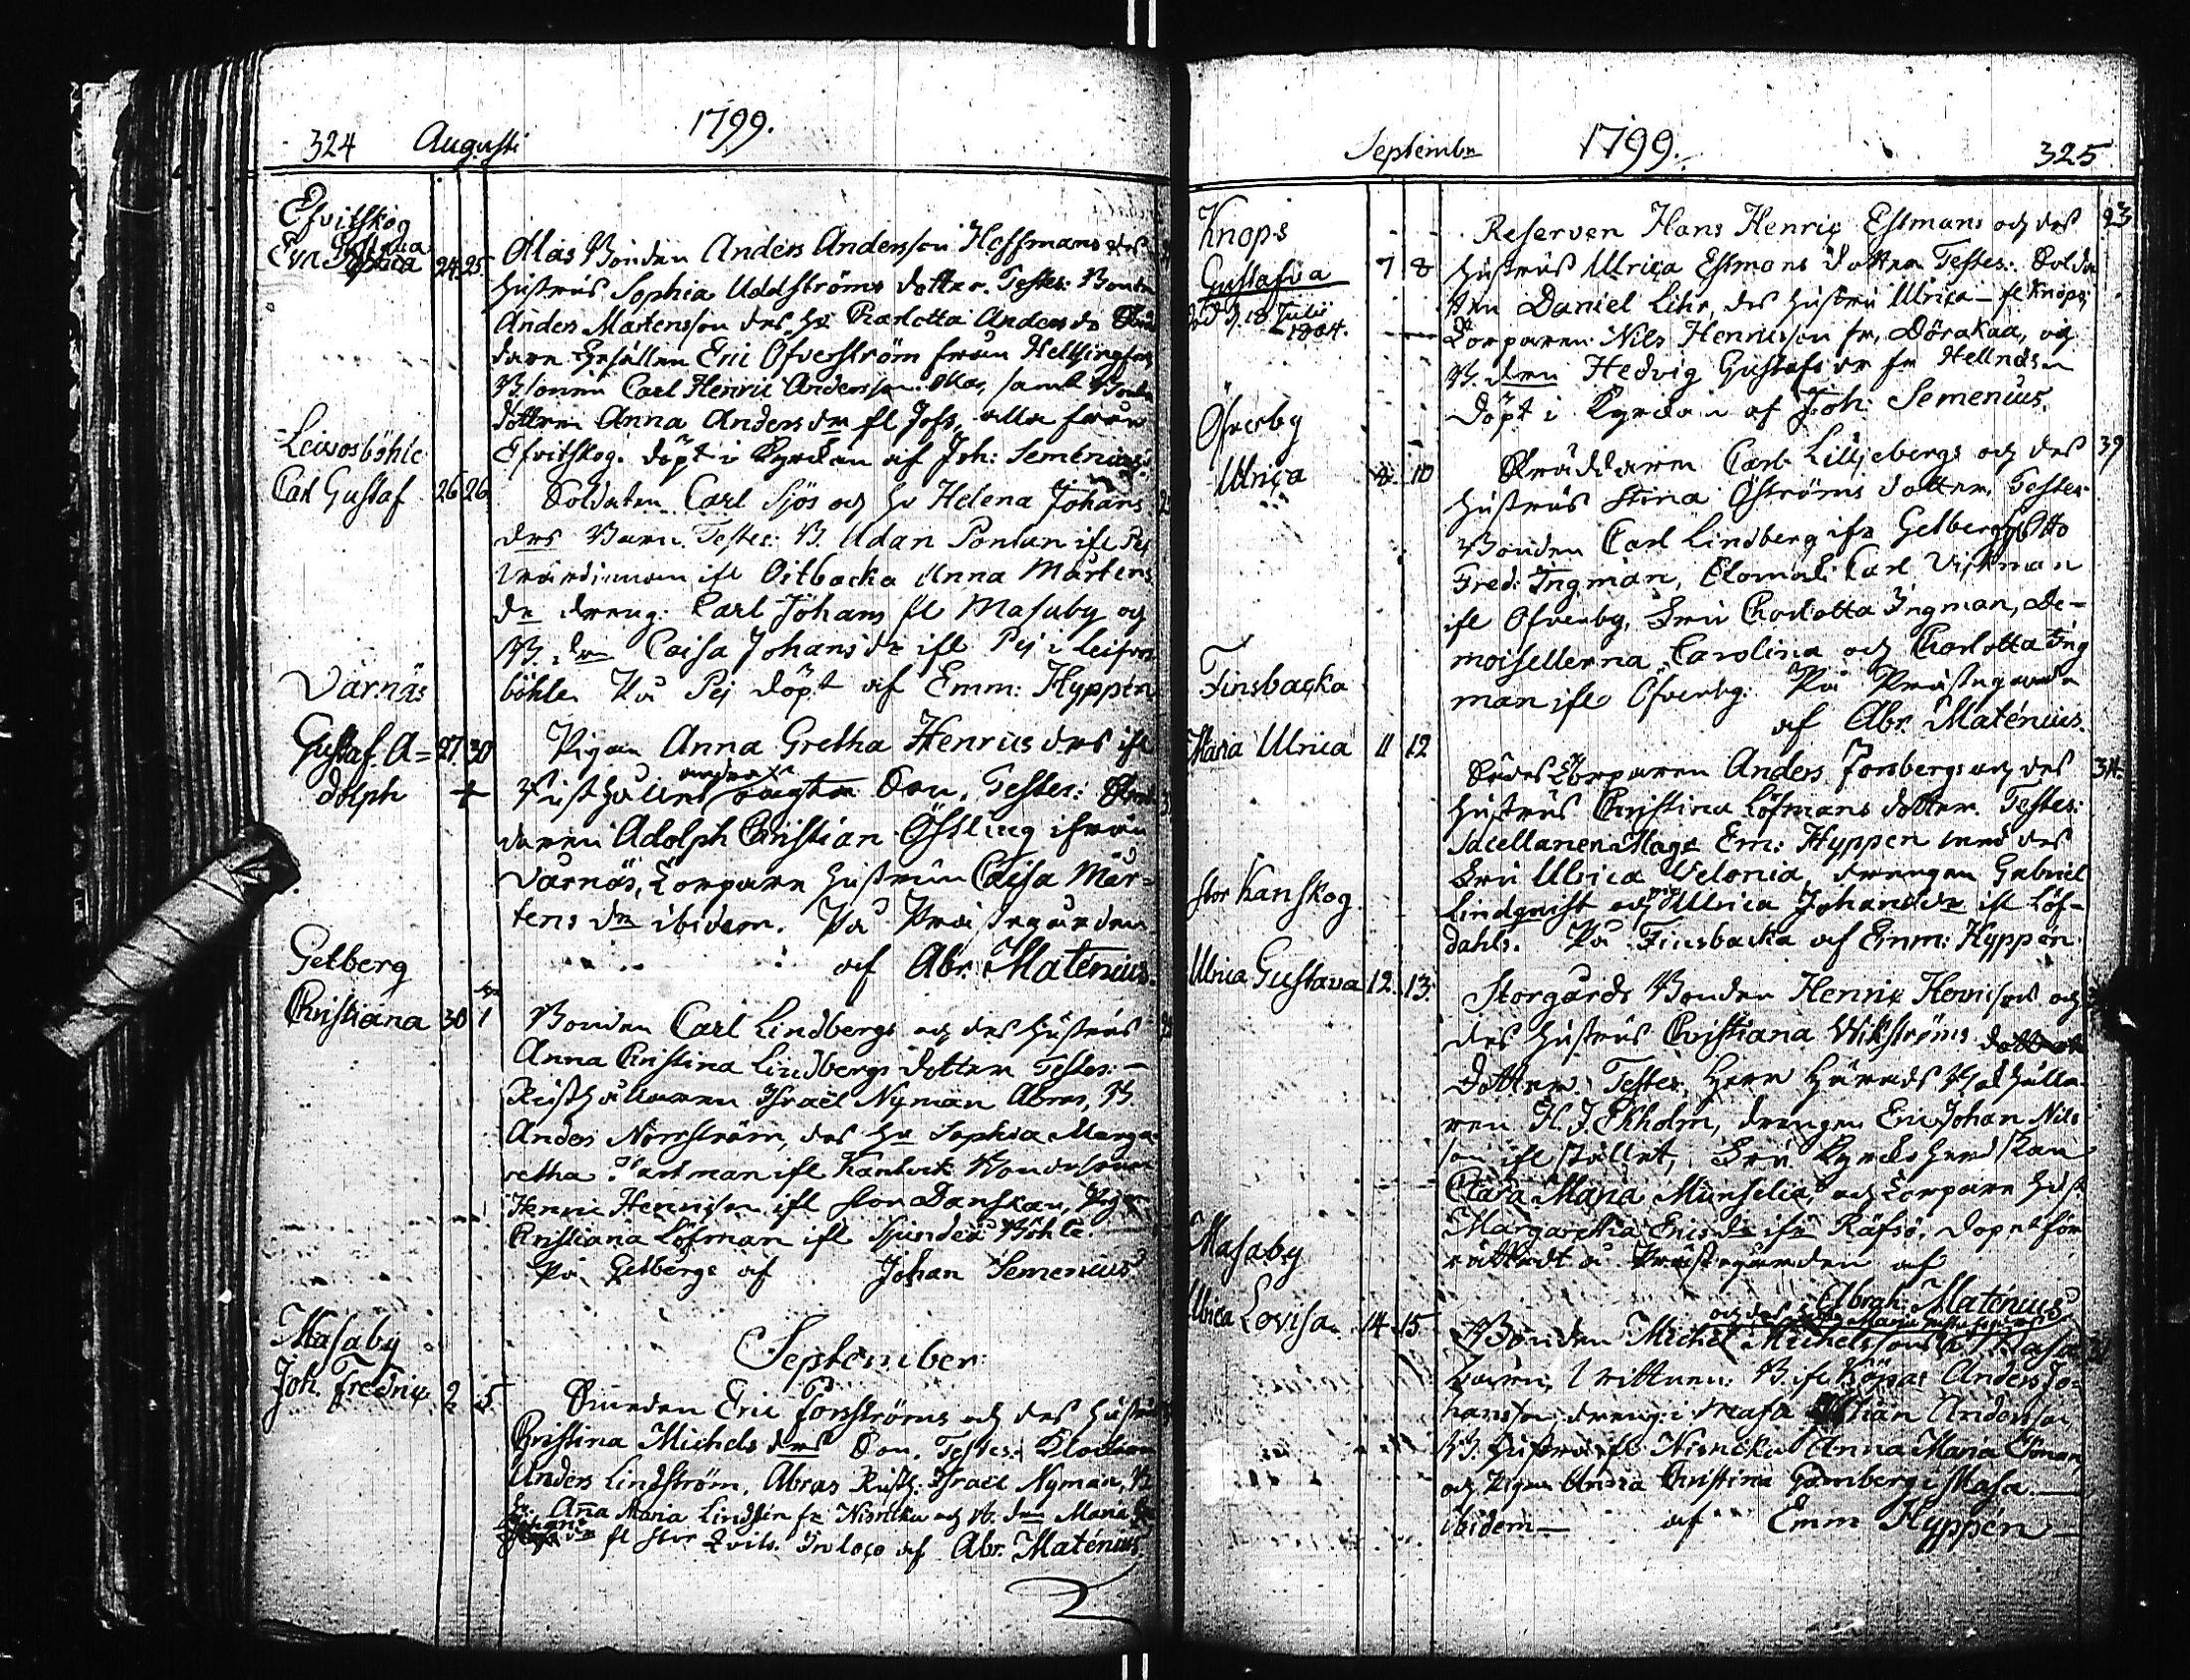 324 Augusti 1799.
Esvitskog
Eva Sophia 24 25
Mas Bonden Anders Andersson Hoffmans
Hustrus Sophia Uddströms dotter. Testes: Bonden
Anders Mårtensson des Hu Charlotta Anders dr
Gesällen Eric Öfverström från Hellsingfors
Carl Henric Andersson Mas, samt Bonde
dottren Anna Anders dr fl Jofs, alla från
Esvitskog. Döpt i Kyrckan af Joh: Semenius.
Leivosböhle
Carl Gustaf 26 26
Soldaten Carl Sjös och Hu Helena Johans
drs Barn. Testes: B. Adan Pontan ifl Pej
Värdinnan ifl Oitbacka Anna Mårtens
dr dreng: Carl Johans fl Masaby og
B. drn Caisa Johans dr ifl Pej i Leifvos
böhle På Pej döpt af Emm: Hyppén
Värnäs
Gustaf A= 27 30
dolph +
Pigan Anna Gretha Henrics drs ifl
oägta Son, Testes:
daren Adolph Christian Össling ifrån
Värnäs, Torpare Hustrun Caisa Mår=
tens dr ibidem. På Prästegården
af Abr. Maténius.
Getberg
Christiana 30 1
Bonden Carl Lindbergs och des Hustrus
Anna Christina Lindbergs dotter Testes: —
Rusthållaren Israël Nyman Abras, B.
Anders Norrström, des Hu Sophia Marga=
retha Hartman ifl Kantvik Bondesonen
Henric Henricson ifl stor Danskan, Pigan
Christiana Löfman ifl Sjundeå Böhle.
På Getbergs af Johan Semenius
September
Masaby
Joh. Fredric 2 5
Smeden Eric Forsströms och des Hustru
Christina Michels drs Son. Testes: Klockaren
Anders Lindström, Abras Rusth: Israël Nyman, B
Hu: Anna Maria Lindsten fr Nisnicka och B. drn Maria
Johans dr fl stor Qvils. In loco af Abr. Maténius
Septembr 1799. 325
Knops
Gustafva 7 8
död d. 18 Julii
1804.
Reserven Hans Henric Estmans och des 23
Hustrus Ulrica Estmans dotter Testes: Solda
ten Daniel Lihr, des Hustru Ulrica — fl Knops;
Torparen Nils Henricsson fr. Dörakaa, og
B. drn Hedvig Gustafs dr fr Hellnäs
Döpt i Kyrckan af Joh: Semenius.
Öfverby
Ulrica 8 10
Skräddaren Carl Liljebergs och des 39
Hustrus Stina Öströms dotter, Testes:
Bonden Carl Lindberg ifr Getberg, Otto
Fred: Ingman, Carl Vikman
ifl Öfverby, Fru Charlotta Ingman, De=
moisellerna Carolina och Charlotta Ing
man ifl Öfverby. På Prästegården
af Abr. Maténius.
Finsbacka
Maria Ulrica 11 12
Torparen Anders Forsbergs och des 34.
Hustrus Christina Löfmans dotter. Testes:
Sacellanen Mag: Em: Hyppén med des
Fru Ulrica Velonia, drengen Gabriel
Lindqvist och pig Ulrica Johans dr ifl Löf=
dahls. På Finsbacka af Emm: Hyppén.
stor Kanskog
Ulrica Gustava 12 13.
Storgårds Bonden Henric Henricsons och
des Hustrus Christiana Wikströms
dotter. Testes: Herr Härads
ren H. J. Ekholm, drengen Eric Johan Nils
son ifl stället, Fru Kyrckoherdskan
Clara Maria Munselia, och Torpare Hust:
Margaretha Erics dr ifr Räfsö. Dopet för
rättadt å Prästegården af
Abrah: Maténius
Masaby
Ulrica Lovisa 14 15
och des Hu Maria Gustafs drs
Bonden Michel Michelssons i Masa
barn. Vittnen: B. ifl Köpas Anders Jo=
hansson dreng: i Masa Johan Andersson,
B. Hustru ifl Nisnicka Anna Maria Öman,
och Pigan Anna Christina Gamberg i Masa. —
ibidem — af Emm Hyppén —